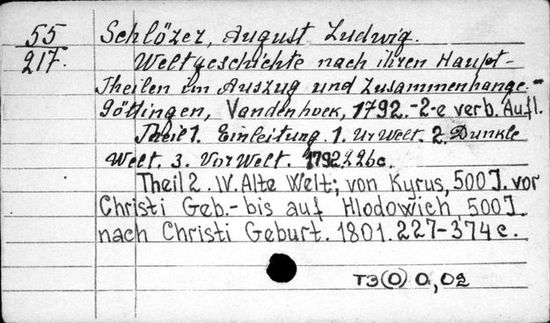 55 Schlözer, August Ludwig.
217. Weltgeschichte nach ihren Haupt-
Theilen im Auszug und Zusammenhange.-
Göttingen, Vandenhoek, 1792.-2-e verb. Aufl.
Theil 1. Einleitung. 1. Ur Welt. 2. Dunkle
Welt. 3. Vor Welt. 1792 226c.
Theil 2. IV. Alte Welt; von Kyrus, 500 J. vor
Christi Geb.- bis auf Hlodowich, 500 J.
nach Christi Geburt. 1801. 227-374c.
ТЭ(0) 0,02